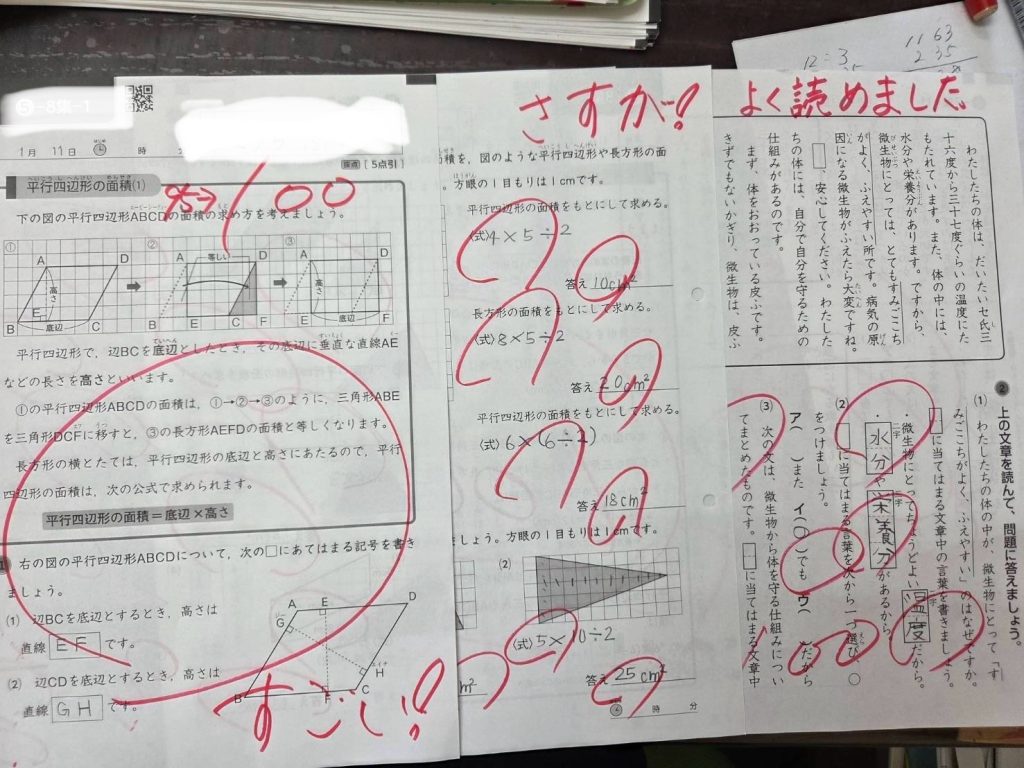 ⑤-8集-1
1月 11日 時 分
[5点引]
平行四辺形の面積(1)
100
下の図の平行四辺形ABCDの面積の求め方を考えましょう。
① ② ③
等しい
A D
高さ
B E 底辺 C
A D
B E C F
A D
高さ
E 底辺 F
平行四辺形で，辺BCを底辺としたとき，その底辺に垂直な直線AE
などの長さを高さといいます。
①の平行四辺形ABCDの面積は，①→②→③のように，三角形ABE
を三角形DCFに移すと，③の長方形AEFDの面積と等しくなります。
長方形の横とたては，平行四辺形の底辺と高さにあたるので，平行
四辺形の面積は，次の公式で求められます。
平行四辺形の面積＝底辺×高さ
右の図の平行四辺形ABCDについて，次の□にあてはまる記号を書き
ましょう。
(1) 辺BCを底辺とするとき，高さは
直線 EF です。
(2) 辺CDを底辺とするとき，高さは
直線 GH です。
A E D
G
H
B F C
すごい!
さすが!
積を，図のような平行四辺形や長方形の面
方眼の1目もりは1cmです。
平行四辺形の面積をもとにして求める。
(式) 4×5÷2
答え 10cm²
長方形の面積をもとにして求める。
(式) 8×5÷2
答え 20cm²
平行四辺形の面積をもとにして求める。
(式) 6×(6÷2)
答え 18cm²
ましょう。方眼の1目もりは1cmです。
(2)
(式) 5×10÷2
答え 25cm²
cm²
時 分
よく読めました
わたしたちの体は、だいたいセ氏三
十六度から三十七度ぐらいの温度にた
もたれています。また、体の中には、
水分や栄養分があります。ですから、
微生物にとっては、とてもすみごこち
がよく、ふえやすい所です。病気の原
因になる微生物がふえたら大変ですね。
□、安心してください。わたした
ちの体には、自分で自分を守るための
仕組みがあるのです。
まず、体をおおっている皮ふです。
きずでもないかぎり、微生物は、皮ふ
❷ 上の文章を読んで、問題に答えましょう。
(1) わたしたちの体の中が、微生物にとって「す
みごこちがよく、ふえやすい」のはなぜですか。
□に当てはまる文章中の言葉を書きましょう。
・微生物にとってちょうどよい温度だから。
・水分や栄養分があるから。
(2) □に当てはまる言葉を次から一つ選び、○
をつけましょう。
ア( )また イ(○)でも ウ( )だから
(3) 次の文は、微生物から体を守る仕組みについ
てまとめたものです。□に当てはまる文章中
12÷3
1163
235